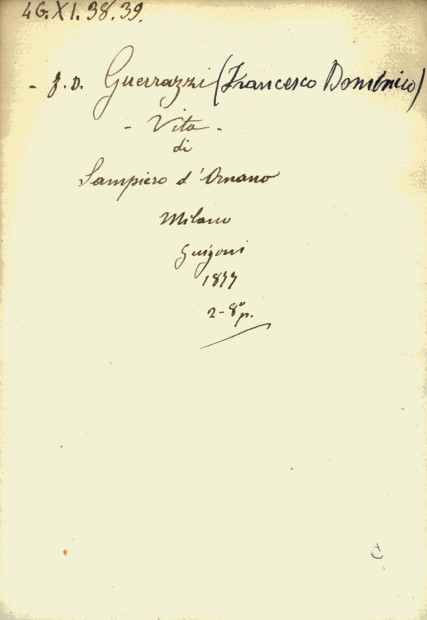 4G.XI.38.39.
- f. D. Guerrazzi (Francesco Doménico)
- Vita -
di
Sampiero d'Ornano
Milano
Guigoni
1877
2-8º p.
C